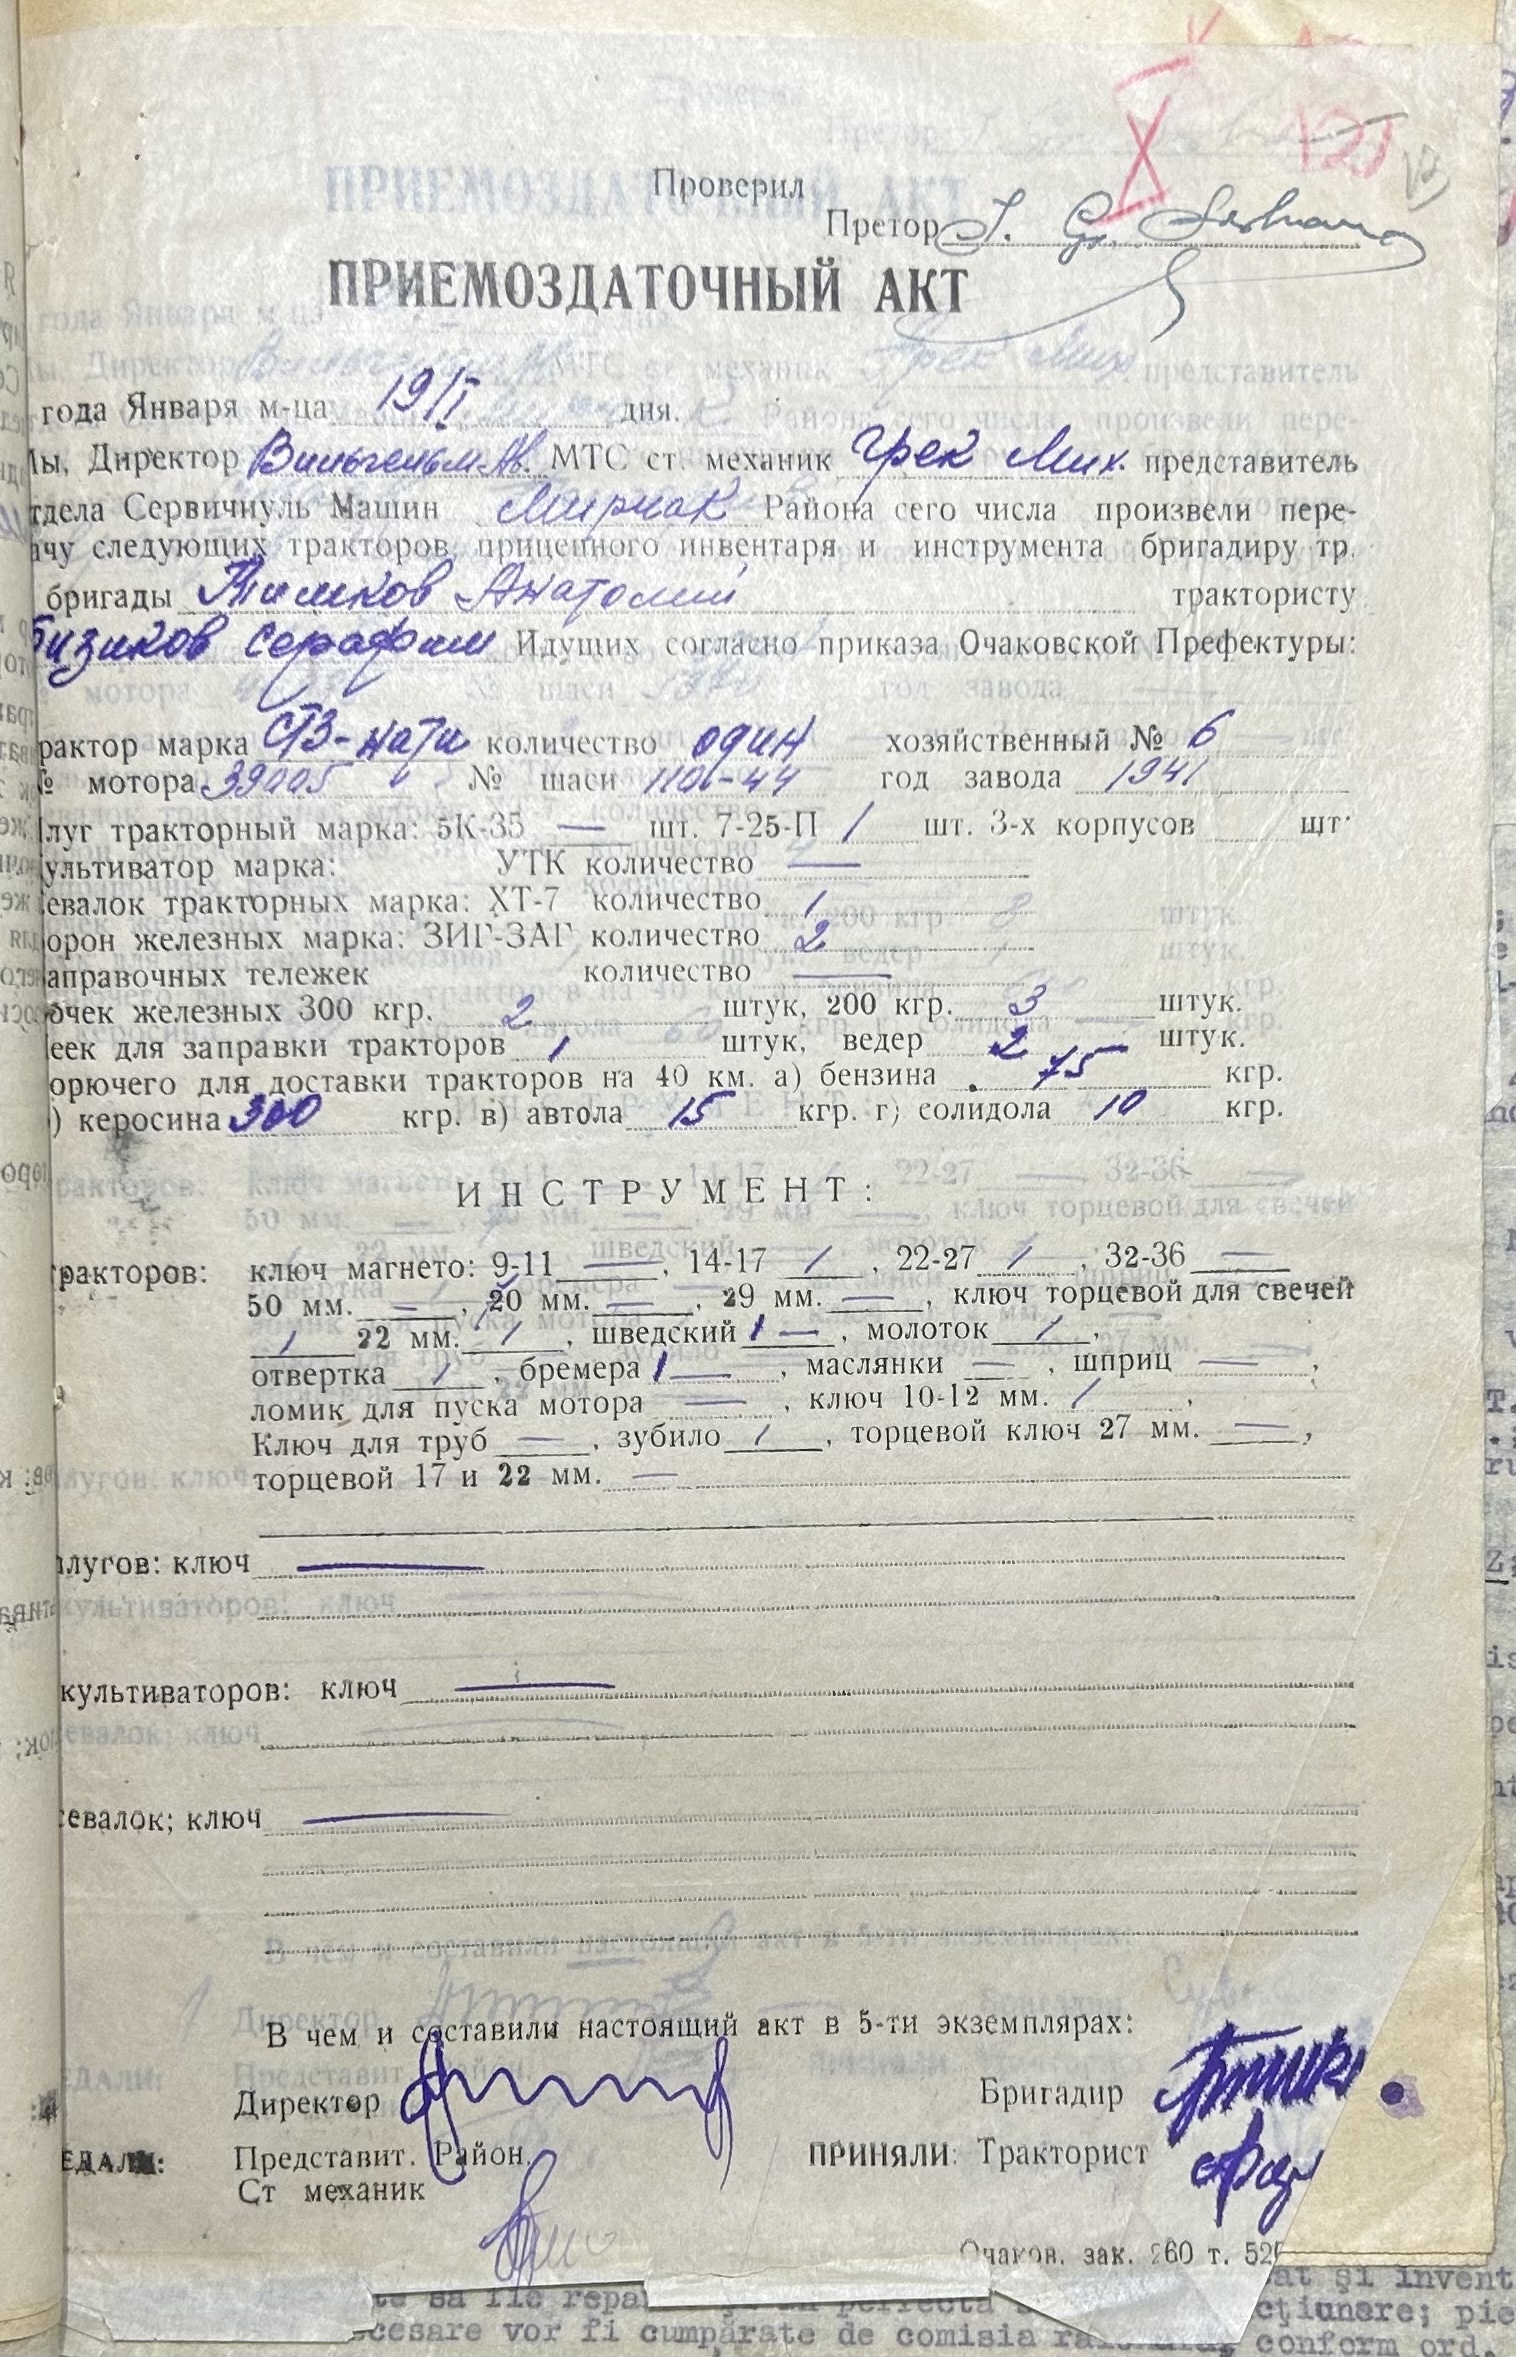 Проверил
Претор
ПРИЕМОЗДАТОЧНЫЙ АКТ
года Января м-ца 19/I дня.
ы, Директор Вильгельм Ав. МТС ст. механик Грек Мих. представитель
тдела Сервичиуль Машин Район Района сего числа произвели пере-
ачу следующих тракторов, прицепного инвентаря и инструмента бригадиру тр.
бригады Тимков Анатолий трактористу
бизиков Серафим Идущих согласно приказа Очаковской Префектуры:
рактор марка СТЗ-нати количество один хозяйственный № 6
№ мотора 39005 № шаси 1101-44 год завода 1941
луг тракторный марка: 5К-35 — шт. 7-25-П 1 шт. 3-х корпусов шт.
ультиватор марка: УТК количество —
евалок тракторных марка: ХТ-7 количество 1
орон железных марка: ЗИГ-ЗАГ количество 2
аправочных тележек количество —
очек железных 300 кгр. 2 штук, 200 кгр. 3 штук.
еек для заправки тракторов 1 штук, ведер 2 штук.
орючего для доставки тракторов на 40 км. а) бензина 75 кгр.
) керосина 300 кгр. в) автола 15 кгр. г) солидола 10 кгр.
ИНСТРУМЕНТ:
тракторов: ключ магнето: 9-11 —, 14-17 1, 22-27 1, 32-36 —
50 мм. —, 20 мм. —, 29 мм. —, ключ торцевой для свечей
1 22 мм. 1, шведский 1 —, молоток 1,
отвертка 1, бремера 1 —, маслянки —, шприц —,
ломик для пуска мотора —, ключ 10-12 мм. 1,
Ключ для труб —, зубило 1, торцевой ключ 27 мм. —,
торцевой 17 и 22 мм. —
плугов: ключ —
культиваторов: ключ —
севалок; ключ —
В чем и составили настоящий акт в 5-ти экземплярах:
Директор Бригадир
ЕДАЛИ: Представит. Район. ПРИНЯЛИ: Тракторист
Ст механик
Очаков. зак. 260 т. 520